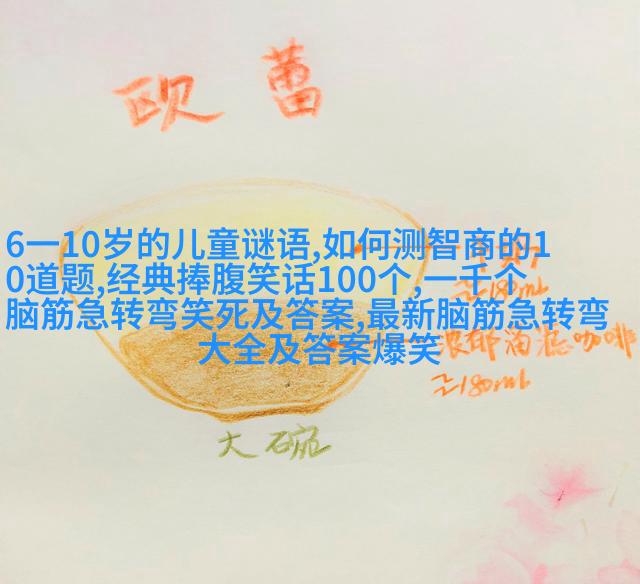 欧蕾
6一10岁的儿童谜语,如何测智商的1
0道题,经典捧腹笑话100个,一千个
≥180mL
脑筋急转弯笑死及答案,最新脑筋急转弯
浓郁滴滤咖啡
大全及答案爆笑
≥180mL
大碗